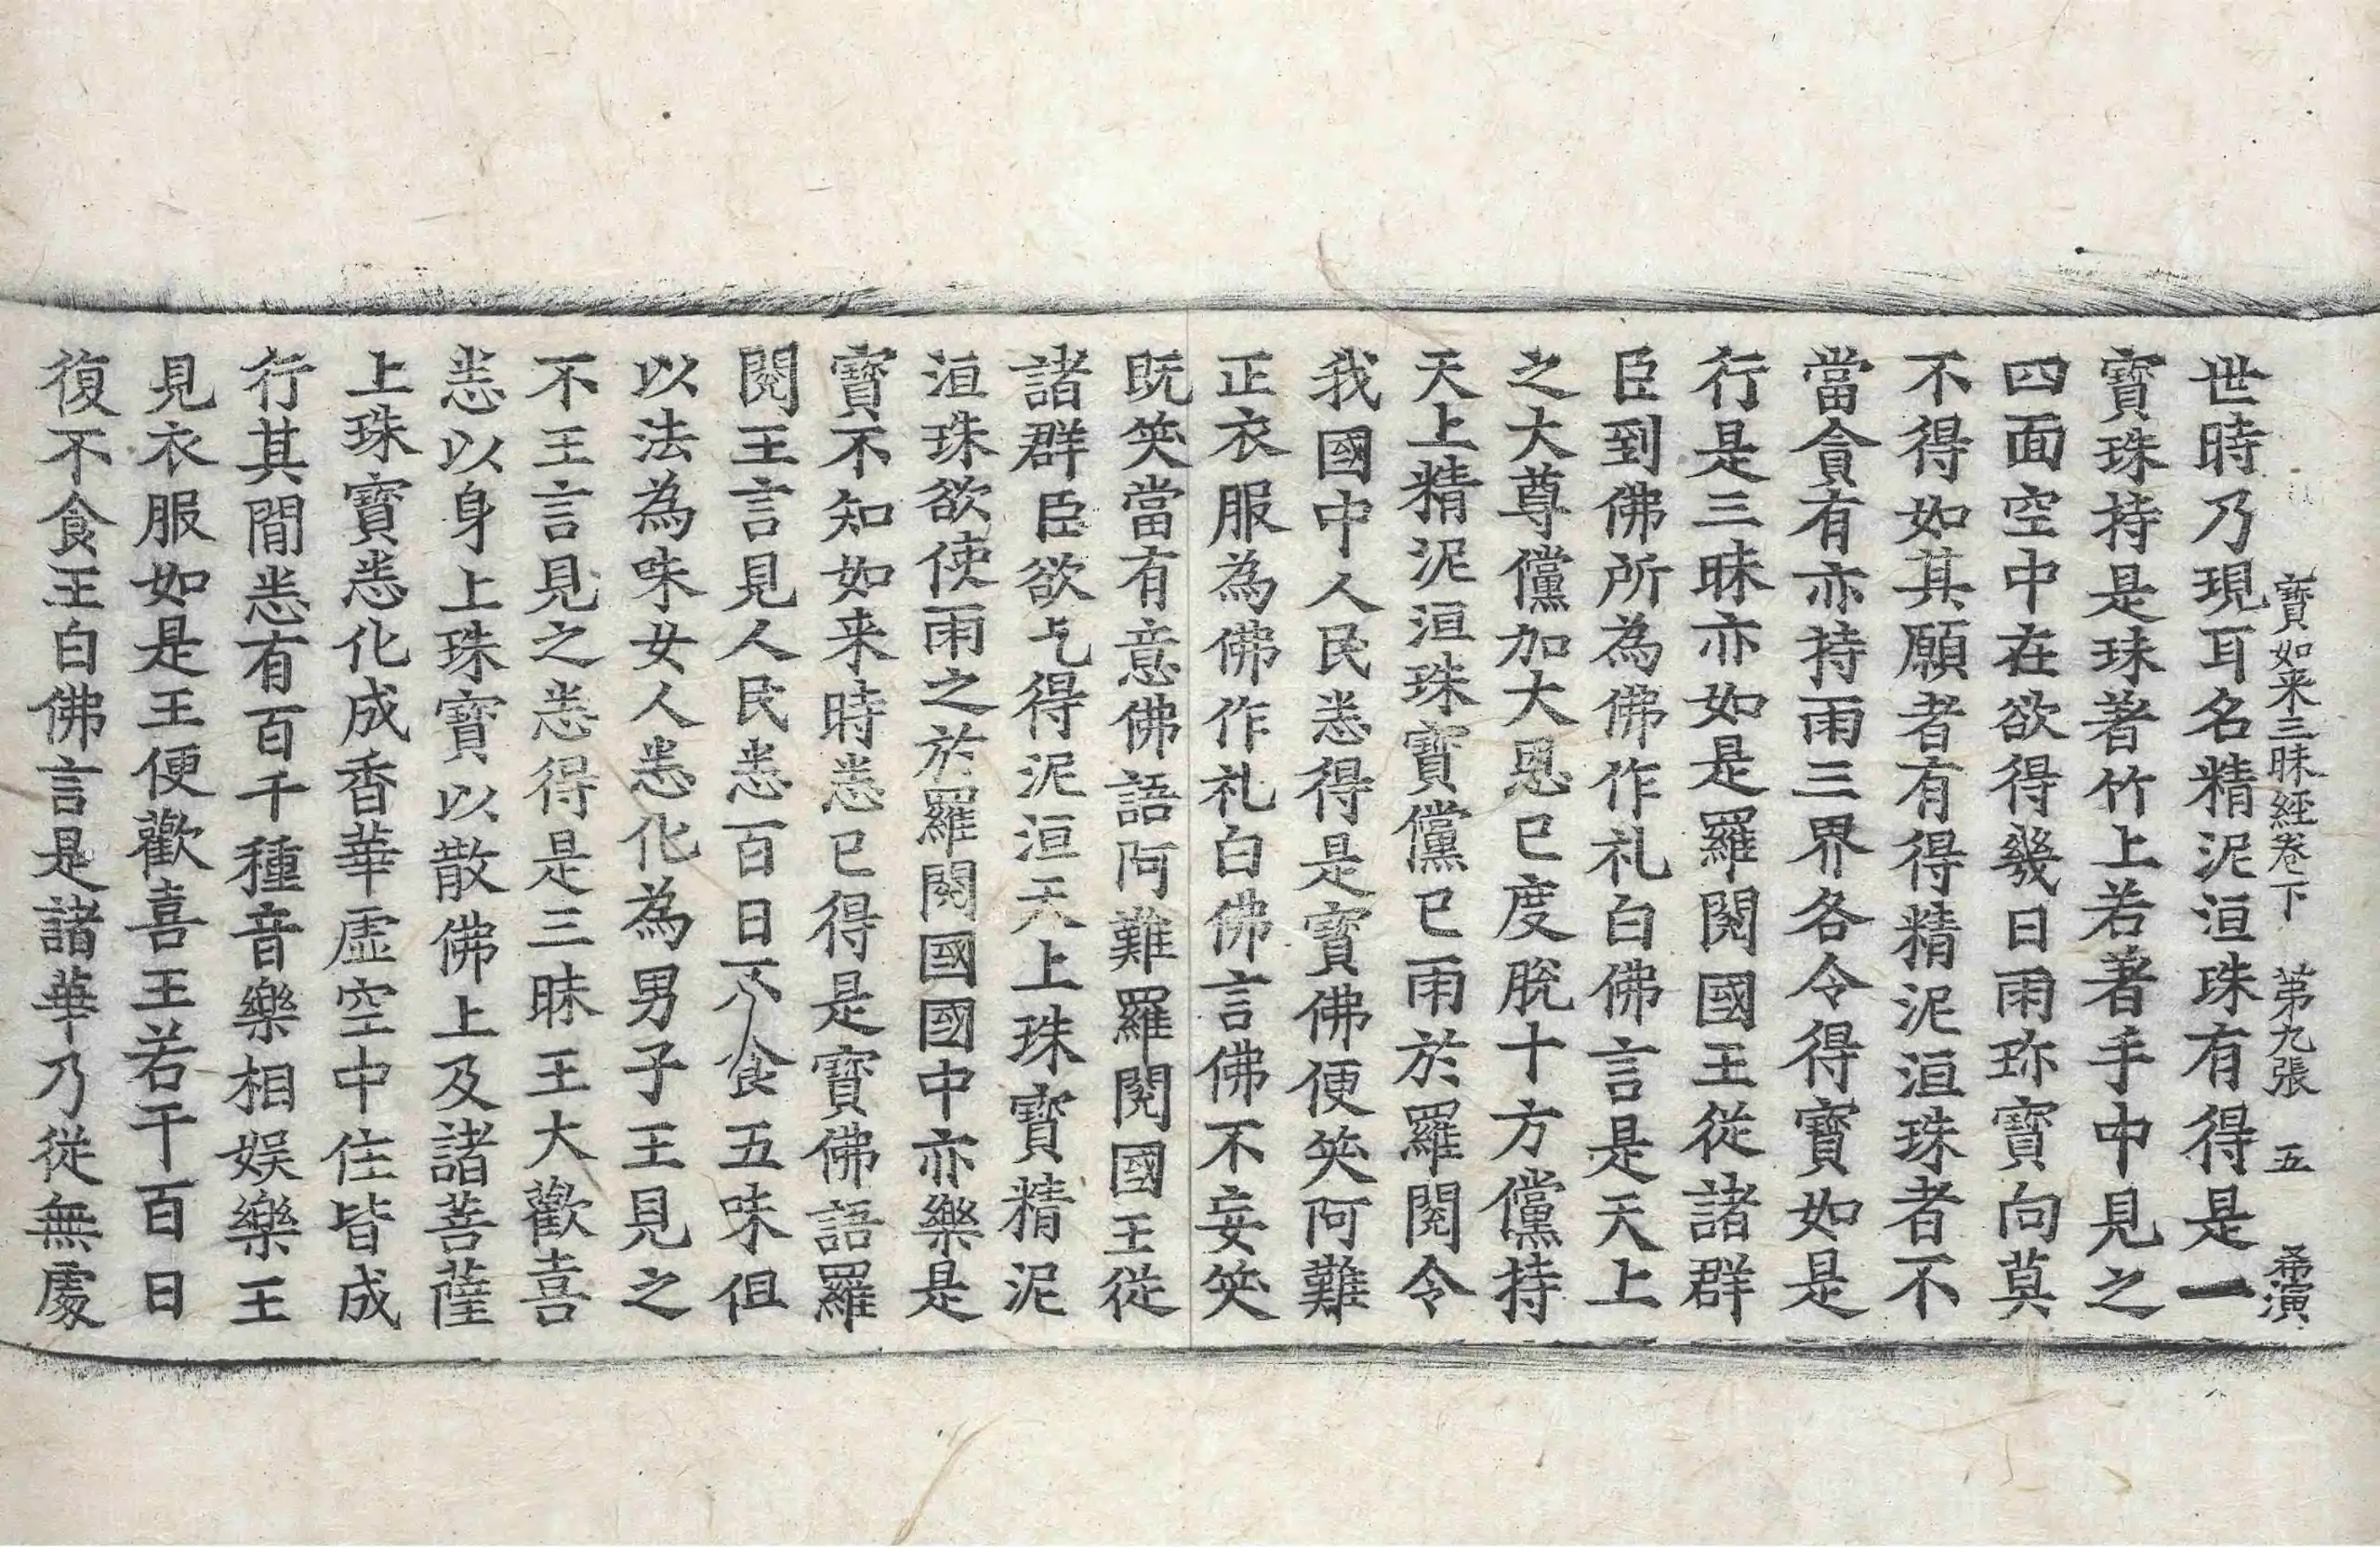 寶如来三昧經卷下　第九張　五　希演
世時乃現耳名精泥洹珠有得是一
寶珠持是珠著竹上若著手中見之
四面空中在欲得幾日雨珎寶向莫
不得如其願者有得精泥洹珠者不
當貪有亦持雨三界各令得寶如是
行是三昧亦如是羅閱國王從諸群
臣到佛所為佛作礼白佛言是天上
之大尊儻加大恩已度脫十方儻持
天上精泥洹珠寶儻已雨於羅閱令
我國中人民悉得是寶佛便笶阿難
正衣服為佛作礼白佛言佛不妄笶
既笶當有意佛語阿難羅閱國王從
諸群臣欲乞得泥洹天上珠寶精泥
洹珠欲使雨之於羅閱國國中亦樂是
寶不知如来時悉已得是寶佛語羅
閱王言見人民悉百日不食五味但
以法為味女人悉化為男子王見之
不王言見之悉得是三昧王大歡喜
悉以身上珠寶以散佛上及諸菩薩
上珠寶悉化成香華虛空中住皆成
行其間悉有百千種音樂相娛樂王
見衣服如是王便歡喜王若干百日
復不食王白佛言是諸華乃從無處